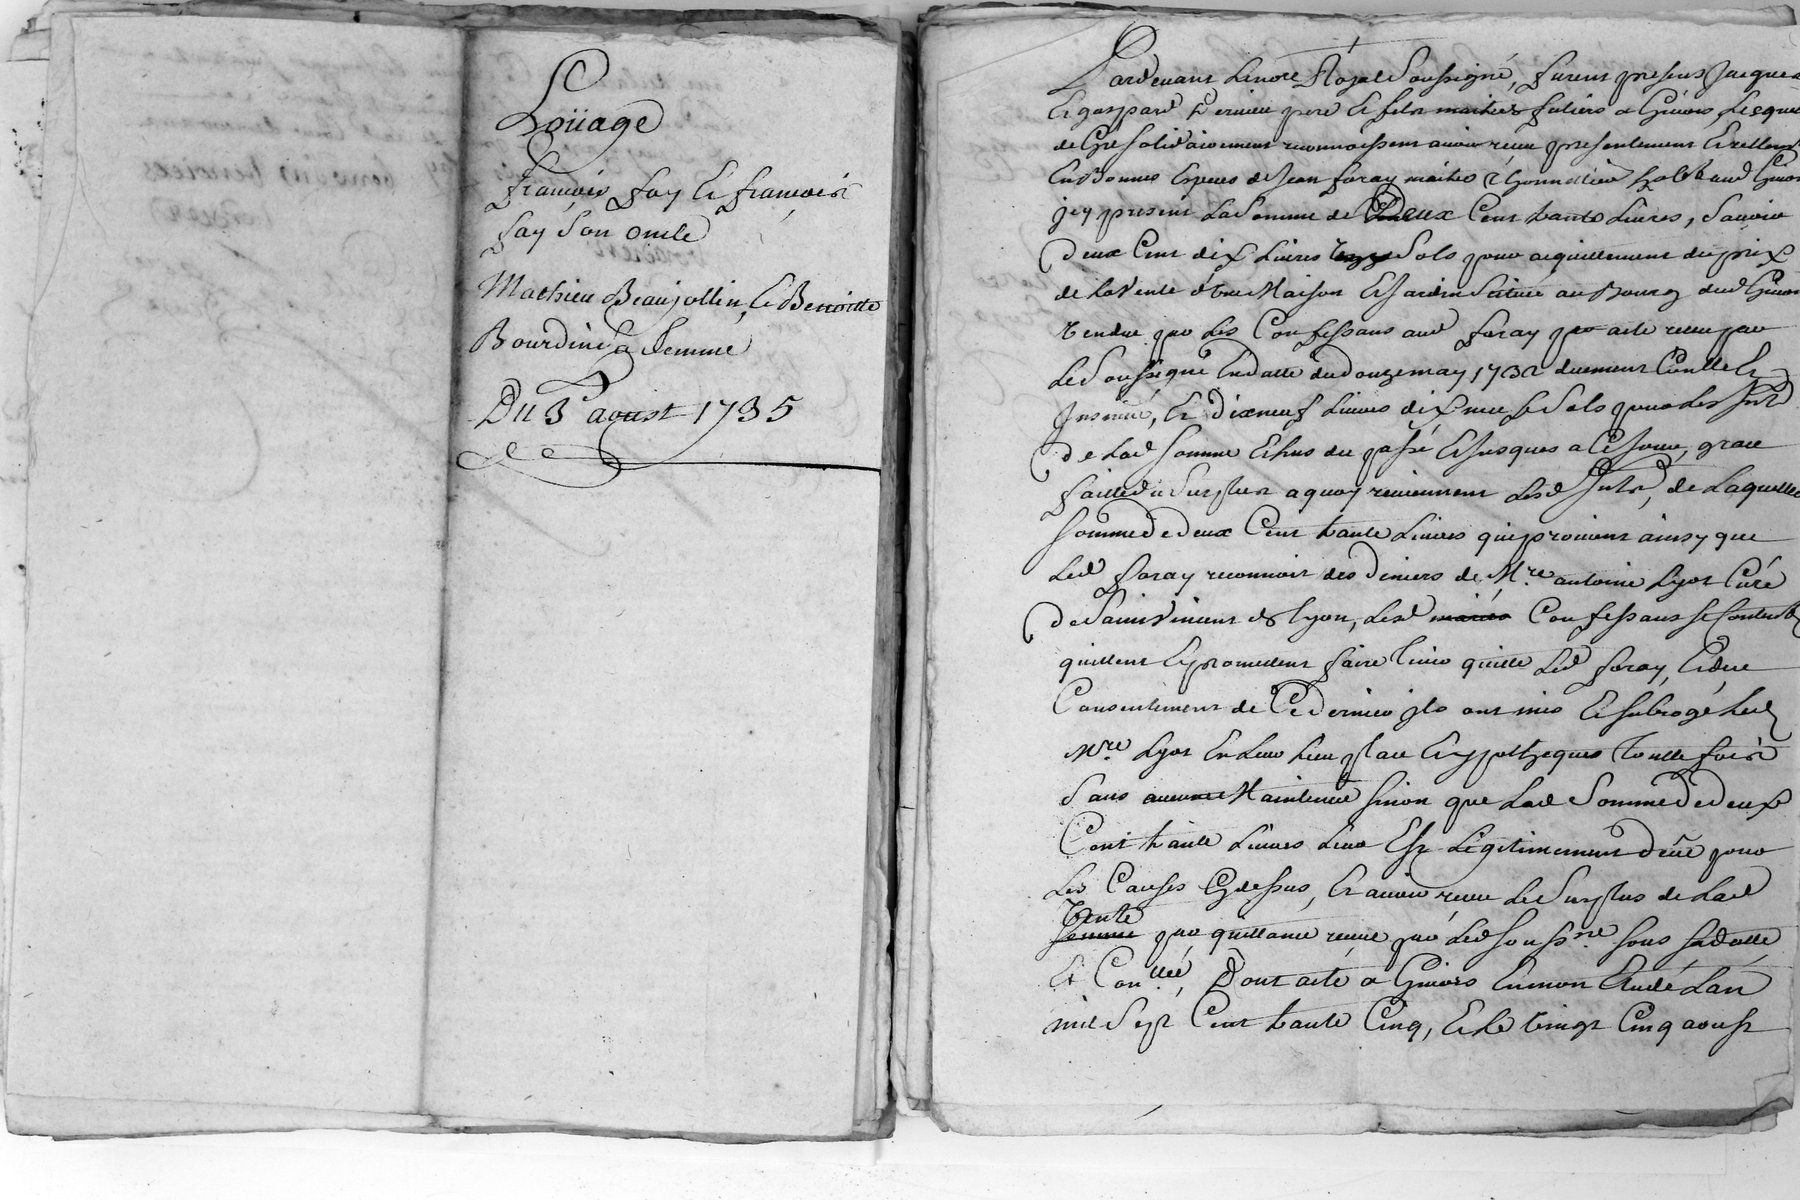 Loüage
françois fay & françois
fay son oncle
Mathieu Beaujollin, & Benoitte
Bourdin sa femme
Du 3e aoust 1735
Pardevant Le no.re Royal soussigné, furent presens Jacques
& gaspard Vernieu pere & fils maitres futiers a Givors, Lesquels
de Gré solidairement reconnoissent avoir receu presentement & reellement
En Bonnes Especes de Jean foray maitre Chonnettier hab. aud Givors
jcy present La somme de Deux Cent trante Livres, scavoir
deux Cent dix Livres sols pour acquittement du prix
de la vente d'une Maison & Jardin scitué au Bourg dud Givors
vendue par Les Confessans aud foray par acte receu par
Le soussigné En datte du douze may 1732 duement Con.llé &
Insinué, & dixneuf Livres dix neuf sols pour Les Jnt
de Lad somme Echus du passé & jusques a Ce jour, grace
faitte du surplus a quoy reviennent Lesd Jnts, de Laquelle
somme de deux Cent trante Livres qui provient ainsy que
Led foray reconnoit des deniers de M.re antoine Lyot Curé
de Saint Vincent de Lyon, Lesd mariés Confessans se Contentent
quittent & promettent faire tenir quitte Led foray, & du
Consentement de Ce dernier jls ont mis & subrogé Led
M.re Lyot En Leur Lieu place & ypotheques touttefois
sans aucune Maintenue sinon que Lad somme de deux
Cent trante Livres Leur Est Legitimement deüe pour
Les Causes Cy dessus, & avoir receu Le surplus de Lad
vente
somme par quittance receue par Led souss.né sous sa datte
& Con.llée, Dont acte a Givors En mon Etude L'an
mil sept Cent trante Cinq, & Le vingt Cinq aoust